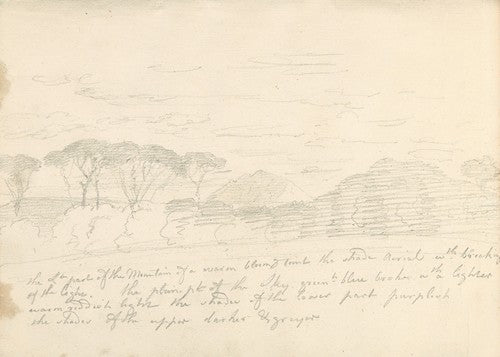 the Lt part of the Mountain of a warm blond tint the shade Aerial wth breaking
of the light. the plain pt of the Sky green blue broke wth lighter
warm reddish lights the shades of the lower part purplish
the shades of the upper darker & greyer